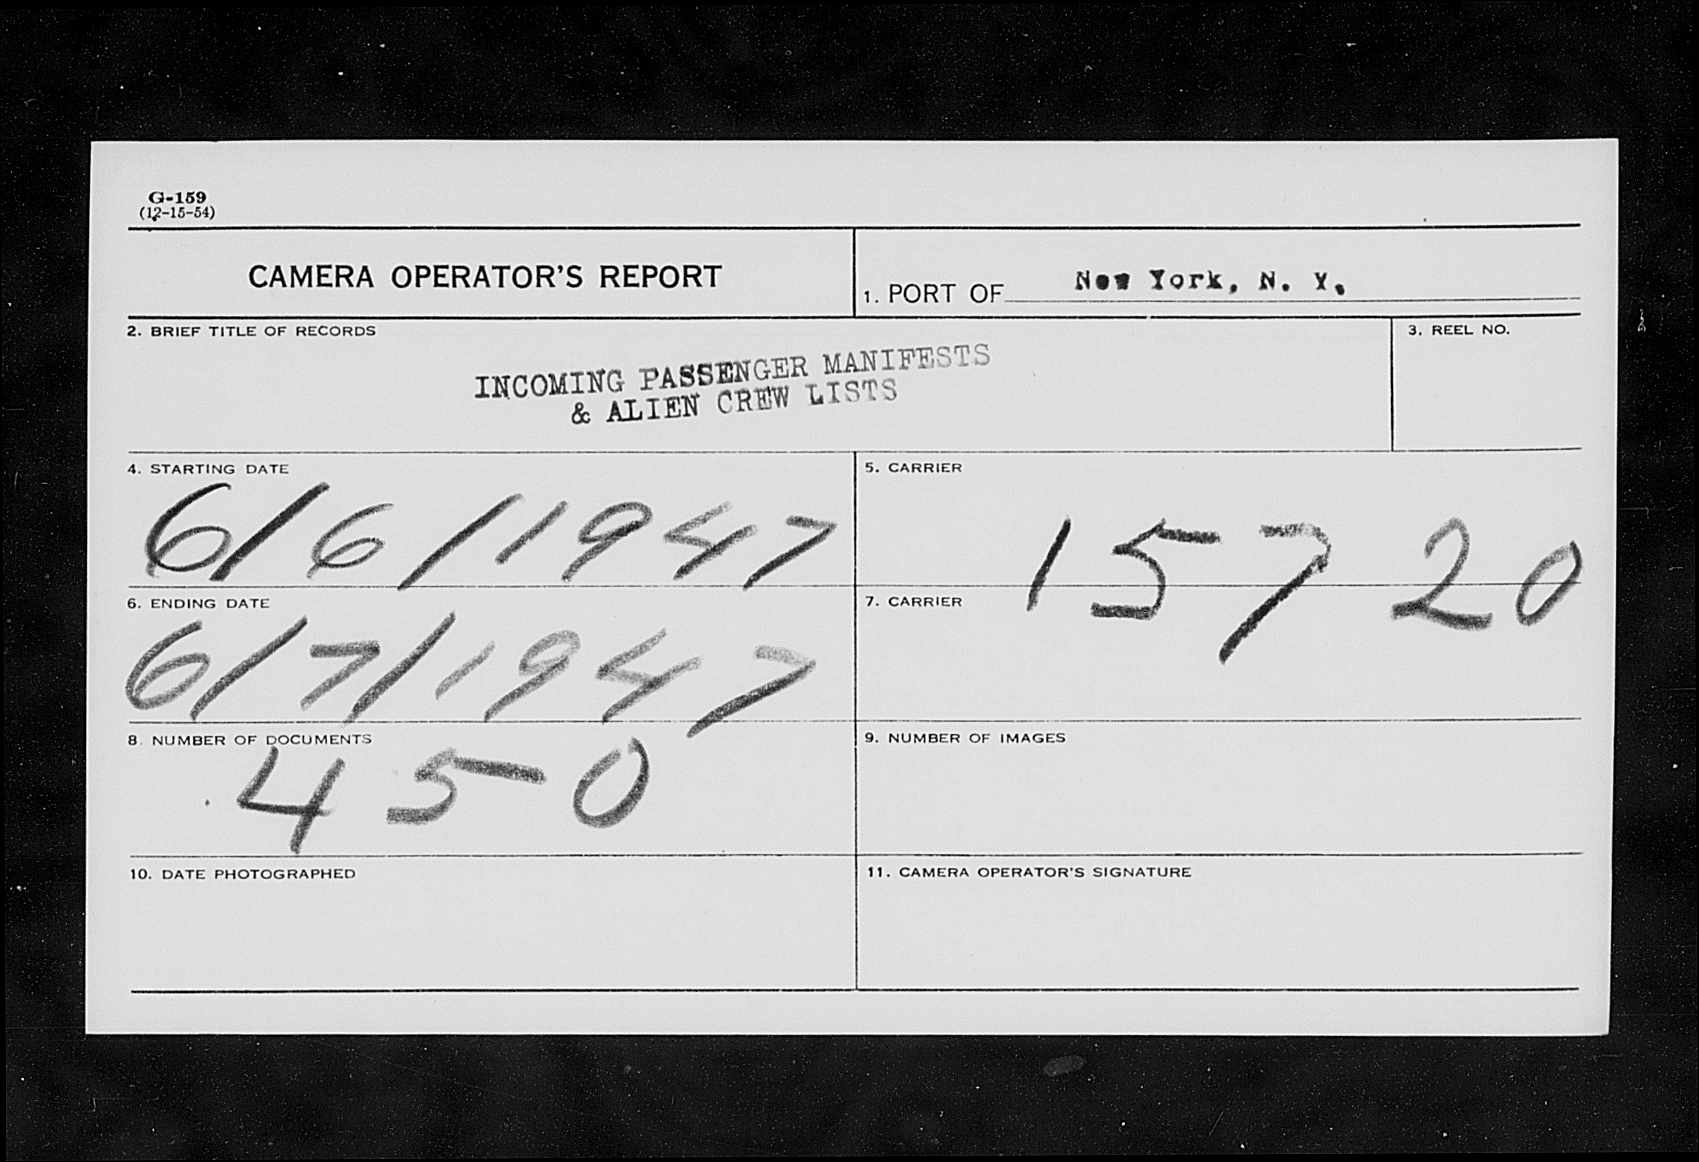 G-159
(12-15-54)
CAMERA OPERATOR'S REPORT
1. PORT OF New York, N. Y.
2. BRIEF TITLE OF RECORDS
INCOMING PASSENGER MANIFESTS
& ALIEN CREW LISTS
3. REEL NO.
4. STARTING DATE
6/6/1947
5. CARRIER
15720
6. ENDING DATE
6/7/1947
7. CARRIER
8. NUMBER OF DOCUMENTS
450
9. NUMBER OF IMAGES
10. DATE PHOTOGRAPHED
11. CAMERA OPERATOR'S SIGNATURE